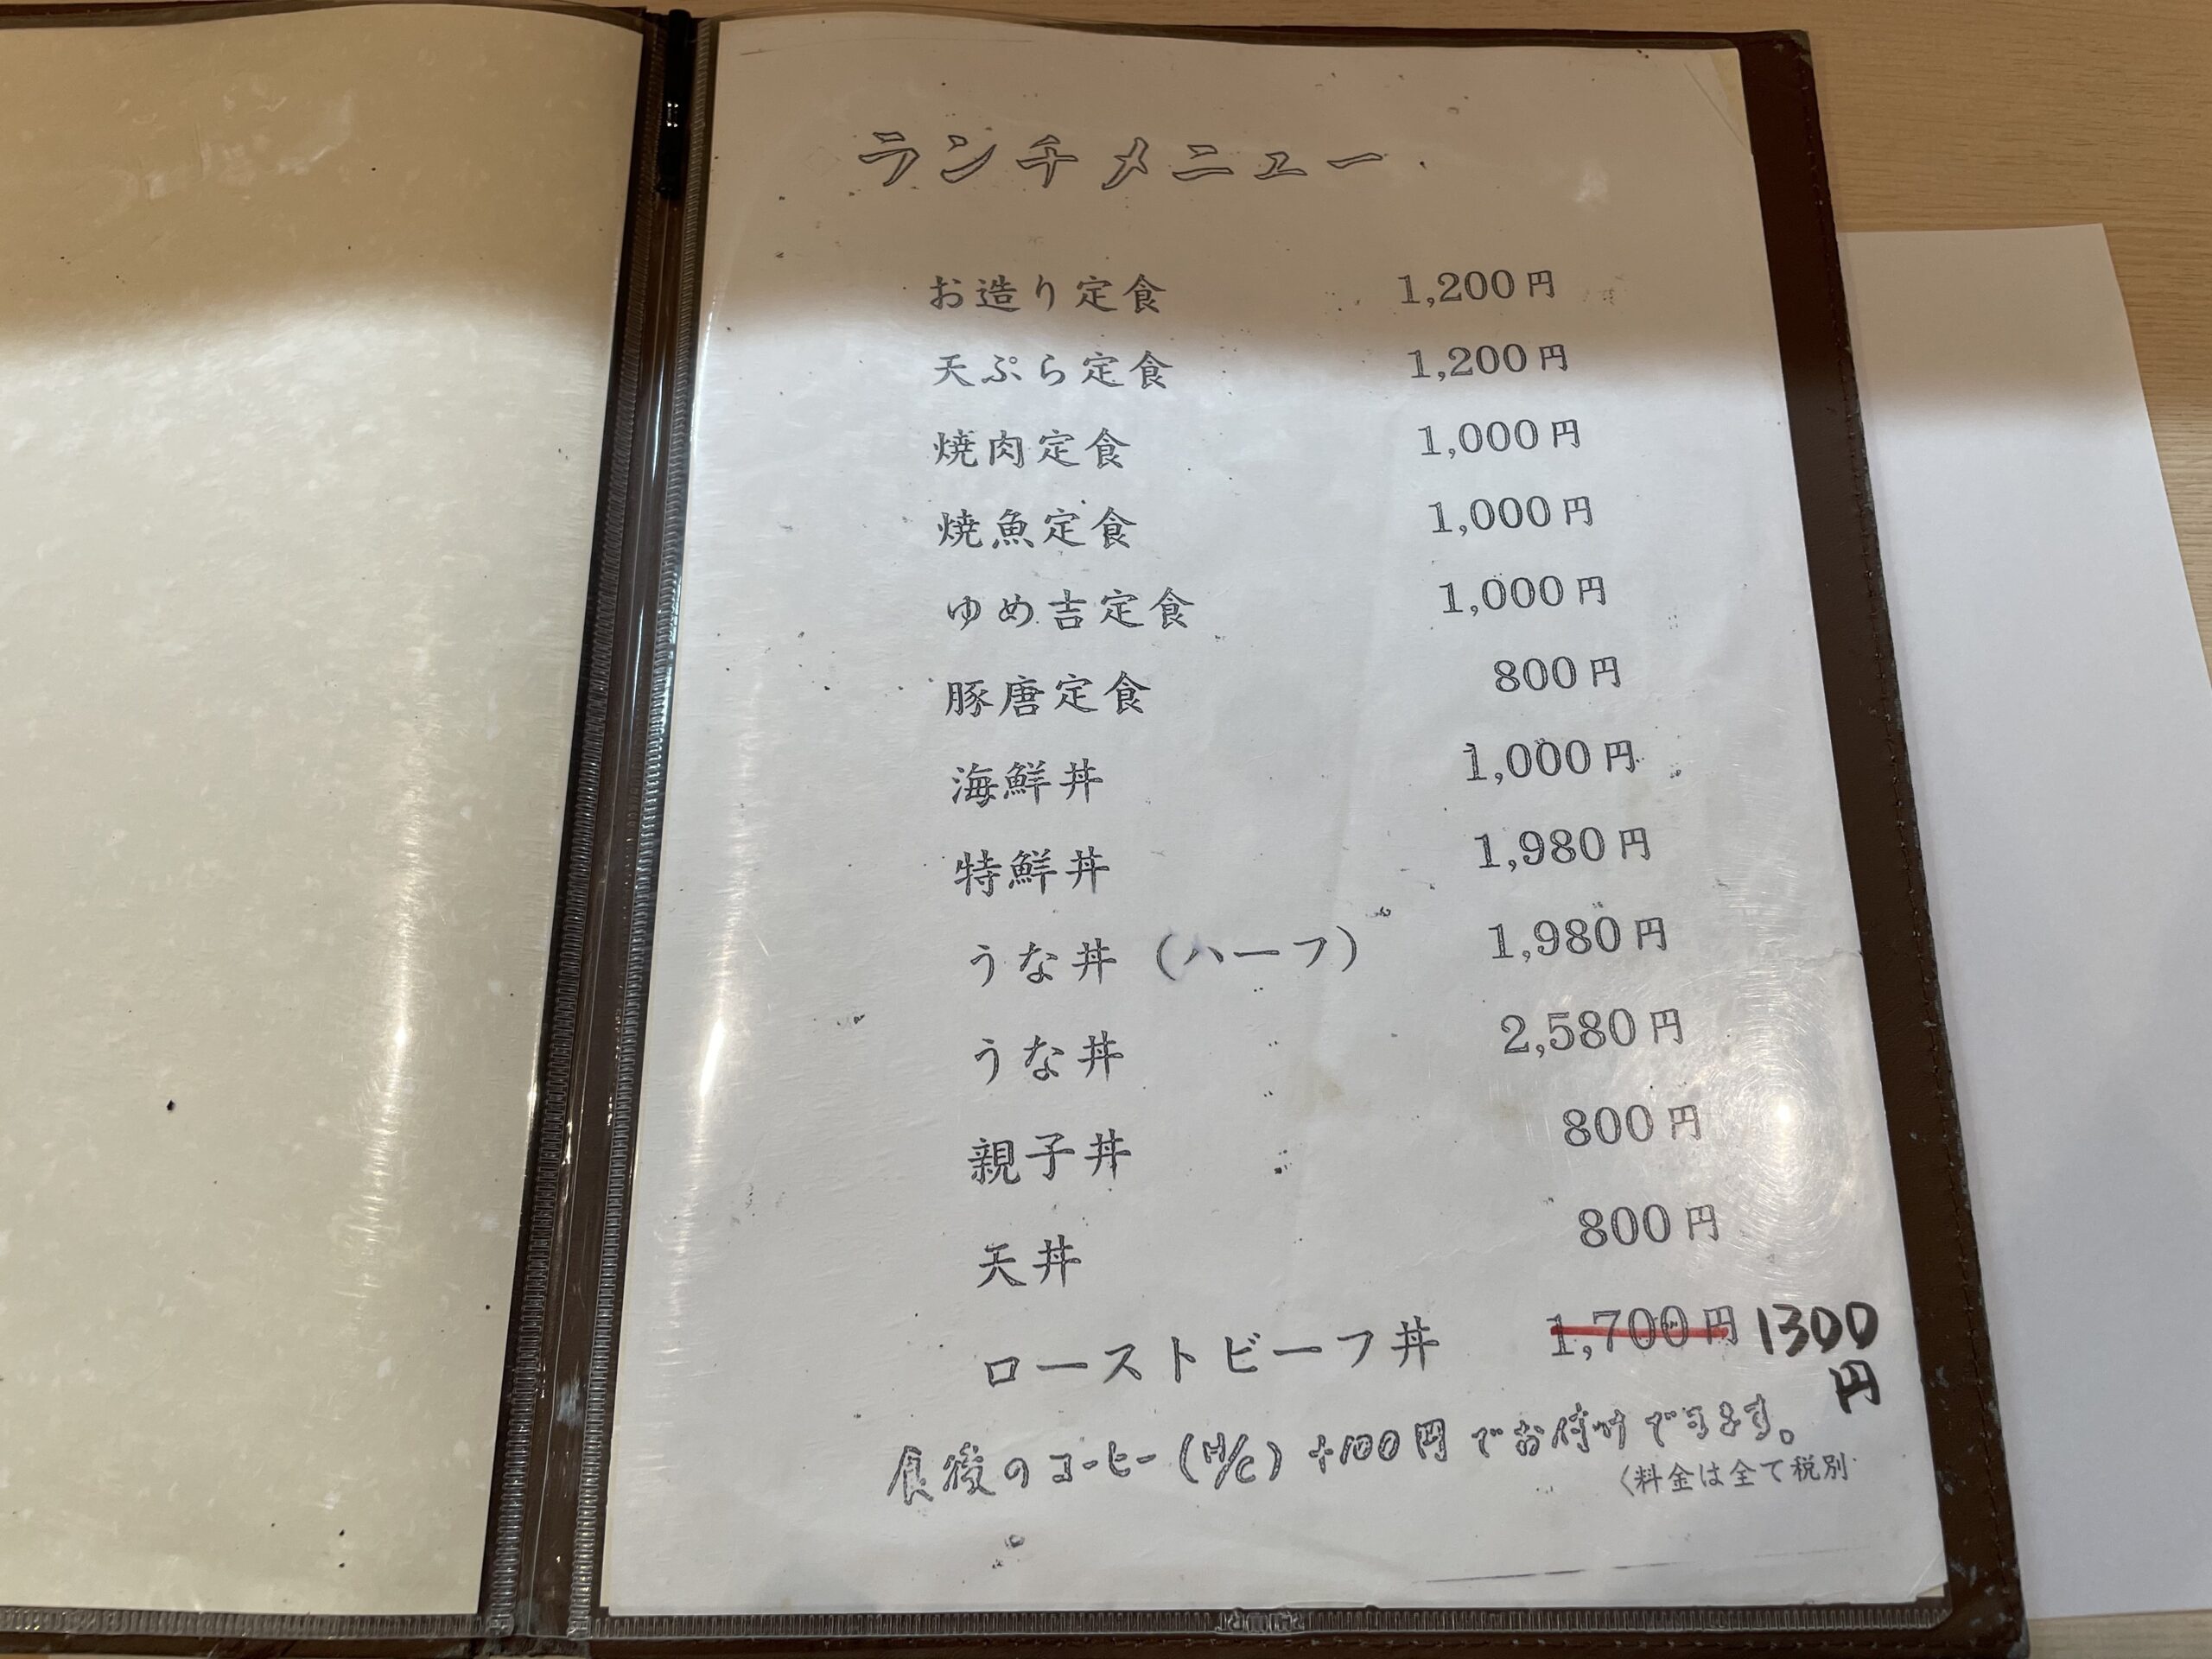 ランチメニュー
お造り定食 1,200円
天ぷら定食 1,200円
焼肉定食 1,000円
焼魚定食 1,000円
ゆめ吉定食 1,000円
豚唐定食 800円
海鮮丼 1,000円
特鮮丼 1,980円
うな丼（ハーフ） 1,980円
うな丼 2,580円
親子丼 800円
天丼 800円
ローストビーフ丼 1,700円 1300円
食後のコーヒー（H/C）+100円でお付けできます。
〈料金は全て税別